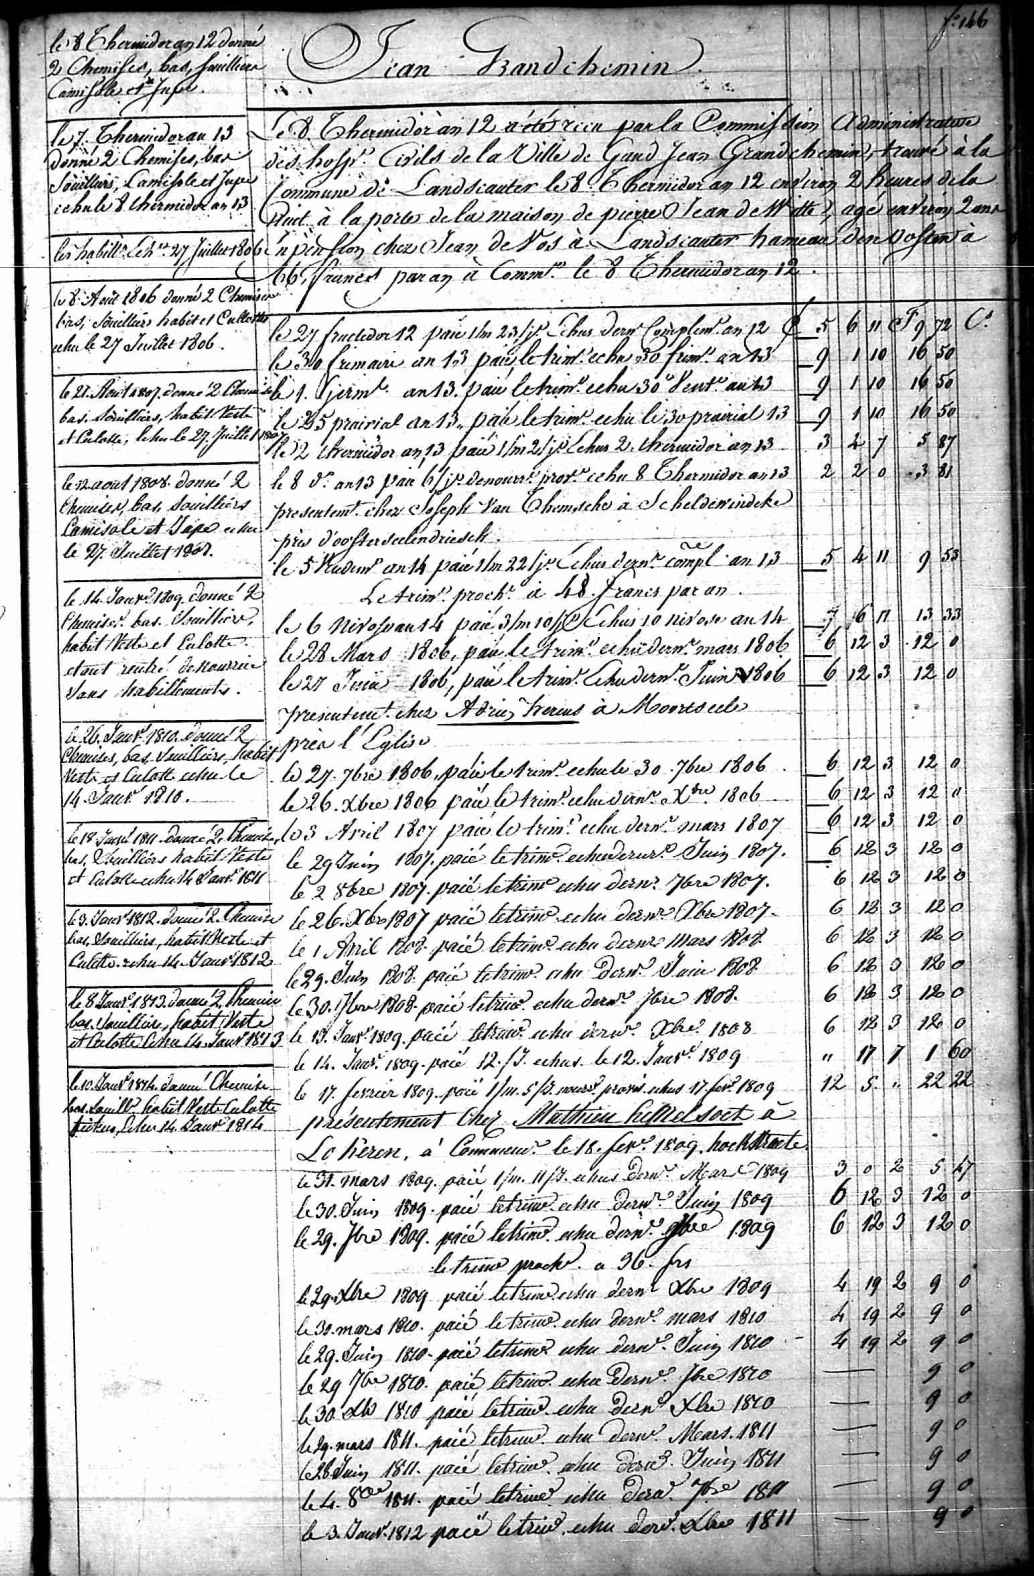 fo. 146
Jean Grandchemin
le 8 Thermidor an 12 donné
2 Chemises, bas, souilliers
Camisole et Jupe.
le 7. Thermidor an 13
donné 2 Chemises, bas
Souilliers, Camisole et Jupe
echu le 8 thermidor an 13
les habillts echus 27 Juillet 1806
le 8 Août 1806 donné 2 Chemises
bas, Souilliers habit et Culottes
echu le 27 Juillet 1806.
le 21. Aout 1807. donné 2 Chemises
bas. Souilliers, habit Veste
et Culotte, echu le 27. Juillet 1807
le 12 aout 1808 donné 2
chemises, bas Souilliers
Camisole et Jupe echu
le 27. Juillet 1808.
le 14. Janvr. 1809 donné 2
Chemises. bas. Souilliers,
habit Veste et Culotte.
etant rentré de nourrice
sans habillements.
le 26. Janvr. 1810. donné 2
Chemises, bas. Souilliers, habit
Veste et Culotte echu le
14. Janvr 1810.
le 18 Janvr 1811. donné 2. Chemises,
bas, Souilliers habit Veste
et Culotte echu 14 Janvr 1811
le 3. Janvr 1812. donné 2. Chemises
bas, Souilliers, habit Veste et
Culotte. echu 14. Janvr 1812
le 8 Janvr 1813. donné 2, Chemises
bas. Souilliers, habit Veste
et Culotte echu 14. Janvr 1813
le 10. Janvr 1814. donné Chemise
bas. Souillrs. habit Veste Culotte
echu 14. Janvr 1814
Le 8. Thermidor an 12 a été reçu par la Commission Administrative
des hospes. Civils de la Ville de Gand Jean Grandchemin, trouvé à la
Commune de Landscauter le 8. Thermidor an 12 environ 2 heures de la
Nuit. à la porte de la maison de pierre Jean de Witte, agé environ 2 ans
En pension chez Jean de Vos à Landscauter hameau den Oosten à
66, francs par an à Commer. le 8 Thermidor an 12.
le 27 fructidor 12 paié 1/m 23/js. Echus dernr. Complemr. an 12 £ 5 6 11 F 9 72 Cs
le 30 frimaire an 13 paié le trimr. echu 30 frimr. an 13 9 1 10 16 50
le 1. Germl. an 13. paié le trimr. echu 30 Vents. an 13 9 1 10 16 50
le 25 prairial an 13. paié le trimr. echu le 30 prairial 13 9 1 10 16 50
le 2 thermidor an 13 paié 1/m 2/js Echus 2. thermidor an 13 3 4 7 5 87
le 8 do. an 13 paié 6/js de nourre. provre. echu 8 Thermidor an 13 2 2 0 3 81
presentemt. chez Joseph Van Themsche à Scheldewindeke
près d'oosterseelendriesch.
le 5 Vendemr. an 14 paié 1/m 22/js. Echus dernr. compl. an 13 5 4 11 9 53
Le trimr. prochn. à 48. francs par an.
le 6 nivose an 14 paié 3/m 10/js Echus 10 nivose an 14 7 6 11 13 33
le 28 Mars 1806, paié le trimr. echu dernr. mars 1806 6 12 3 12 0
le 27 Juin 1806, paié le trimr. Echu dernr. Juin 1806 6 12 3 12 0
présentemt. chez à Moortseele
près l'Eglise
le 27. 7bre 1806. paié le trimr. echu le 30. 7bre 1806 6 12 3 12 0
le 26. Xbre 1806 paié le trimr. echu dernr. Xbre. 1806 6 12 3 12 0
le 3 Avril 1807 paié le trimr. echu dernr. mars 1807 6 12 3 12 0
le 29 Juin 1807. paié le trimr. echu dernr. Juin 1807. 6 12 3 12 0
le 2 8bre 1807. paié le trimr echu dernr. 7bre 1807. 6 12 3 12 0
le 26. Xbre 1807 paié le trimr. echu dernr. Xbre 1807. 6 12 3 12 0
le 1 Avril 1808. paié le trimr. echu dernr mars 1808 6 12 3 12 0
le 29. Juin 1808. paié le trimr. echu dernr. Juin 1808 6 12 3 12 0
le 30. 7bre 1808. paié le trimr. echu dernr. 7bre 1808. 6 12 3 12 0
le 13. Janvr. 1809. paié le trimr. echu dernr. Xbre. 1808 6 12 3 12 0
le 14. Janvr. 1809. paié 12./J. echus. le 12. Janvr. 1809 " 17 7 1 60
le 17. fevrier 1809. paié 1/m. 5/J. nourre. prove. echus 17 fevr. 1809 12 5 " 22 22
présentement chez Mathieu à
Lohéren, à Commencr. le 18. fevr. 1809,
le 31. mars 1809. paié 1/m. 11/J. echus dernr. Mars 1809 3 0 2 5 47
le 30. Juin 1809. paié le trimr. echu dernr. Juin 1809 6 12 3 12 0
le 29. 7bre 1809. paié le trimr. echu dernr. 7bre 1809 6 12 3 12 0
le trimr prochn. a 36. frs
le 29. Xbre 1809. paié le trimr. echu dernr Xbre 1809 4 19 2 9 0
le 30. mars 1810. paié le trimr. echu dernr. mars 1810 4 19 2 9 0
le 29. Juin 1810. paié le trimr echu dernr. Juin 1810 4 19 2 9 0
le 29 7bre 1810. paié le trimr. echu dernr. 7bre 1810 — 9 0
le 30. Xbre 1810 paié le trimr. echu dernr. Xbre 1810 — 9 0
le 29. mars 1811. paié le trimr. echu dernr. Mars. 1811 — 9 0
le 28 Juin 1811. paié le trimr. echu dernr. Juin 1811 — 9 0
le 4. 8bre 1811. paié le trimr. echu dernr. 7bre 1811 — 9 0
le 3. Janvr. 1812 paié le trimr. echu dernr. Xbre 1811 — 9 0